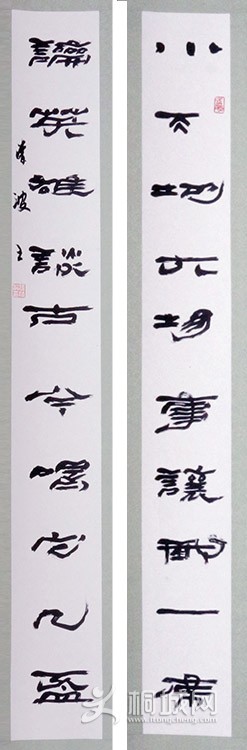 小天地大場事讓卿一席
論英雄談古今喝它几盃
桐城网
www.itongcheng.com